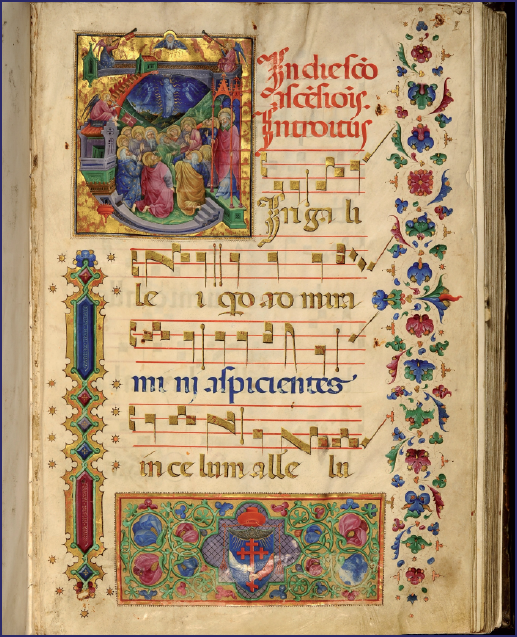 In die scõ
ascẽsiõis.
Introitus
Iri ga li
le i qd ad mira
mi ni aspicientes
in ce lum alle lu